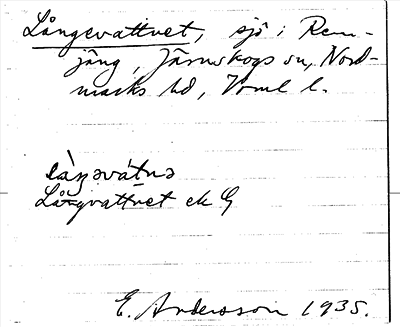 Långevattnet, sjö i Renn-
jäng, Järnskogs sn, Nord-
marks hd, Vrml l.
làŋəvátnə
Långvattnet ek G
E. Andersson 1935.